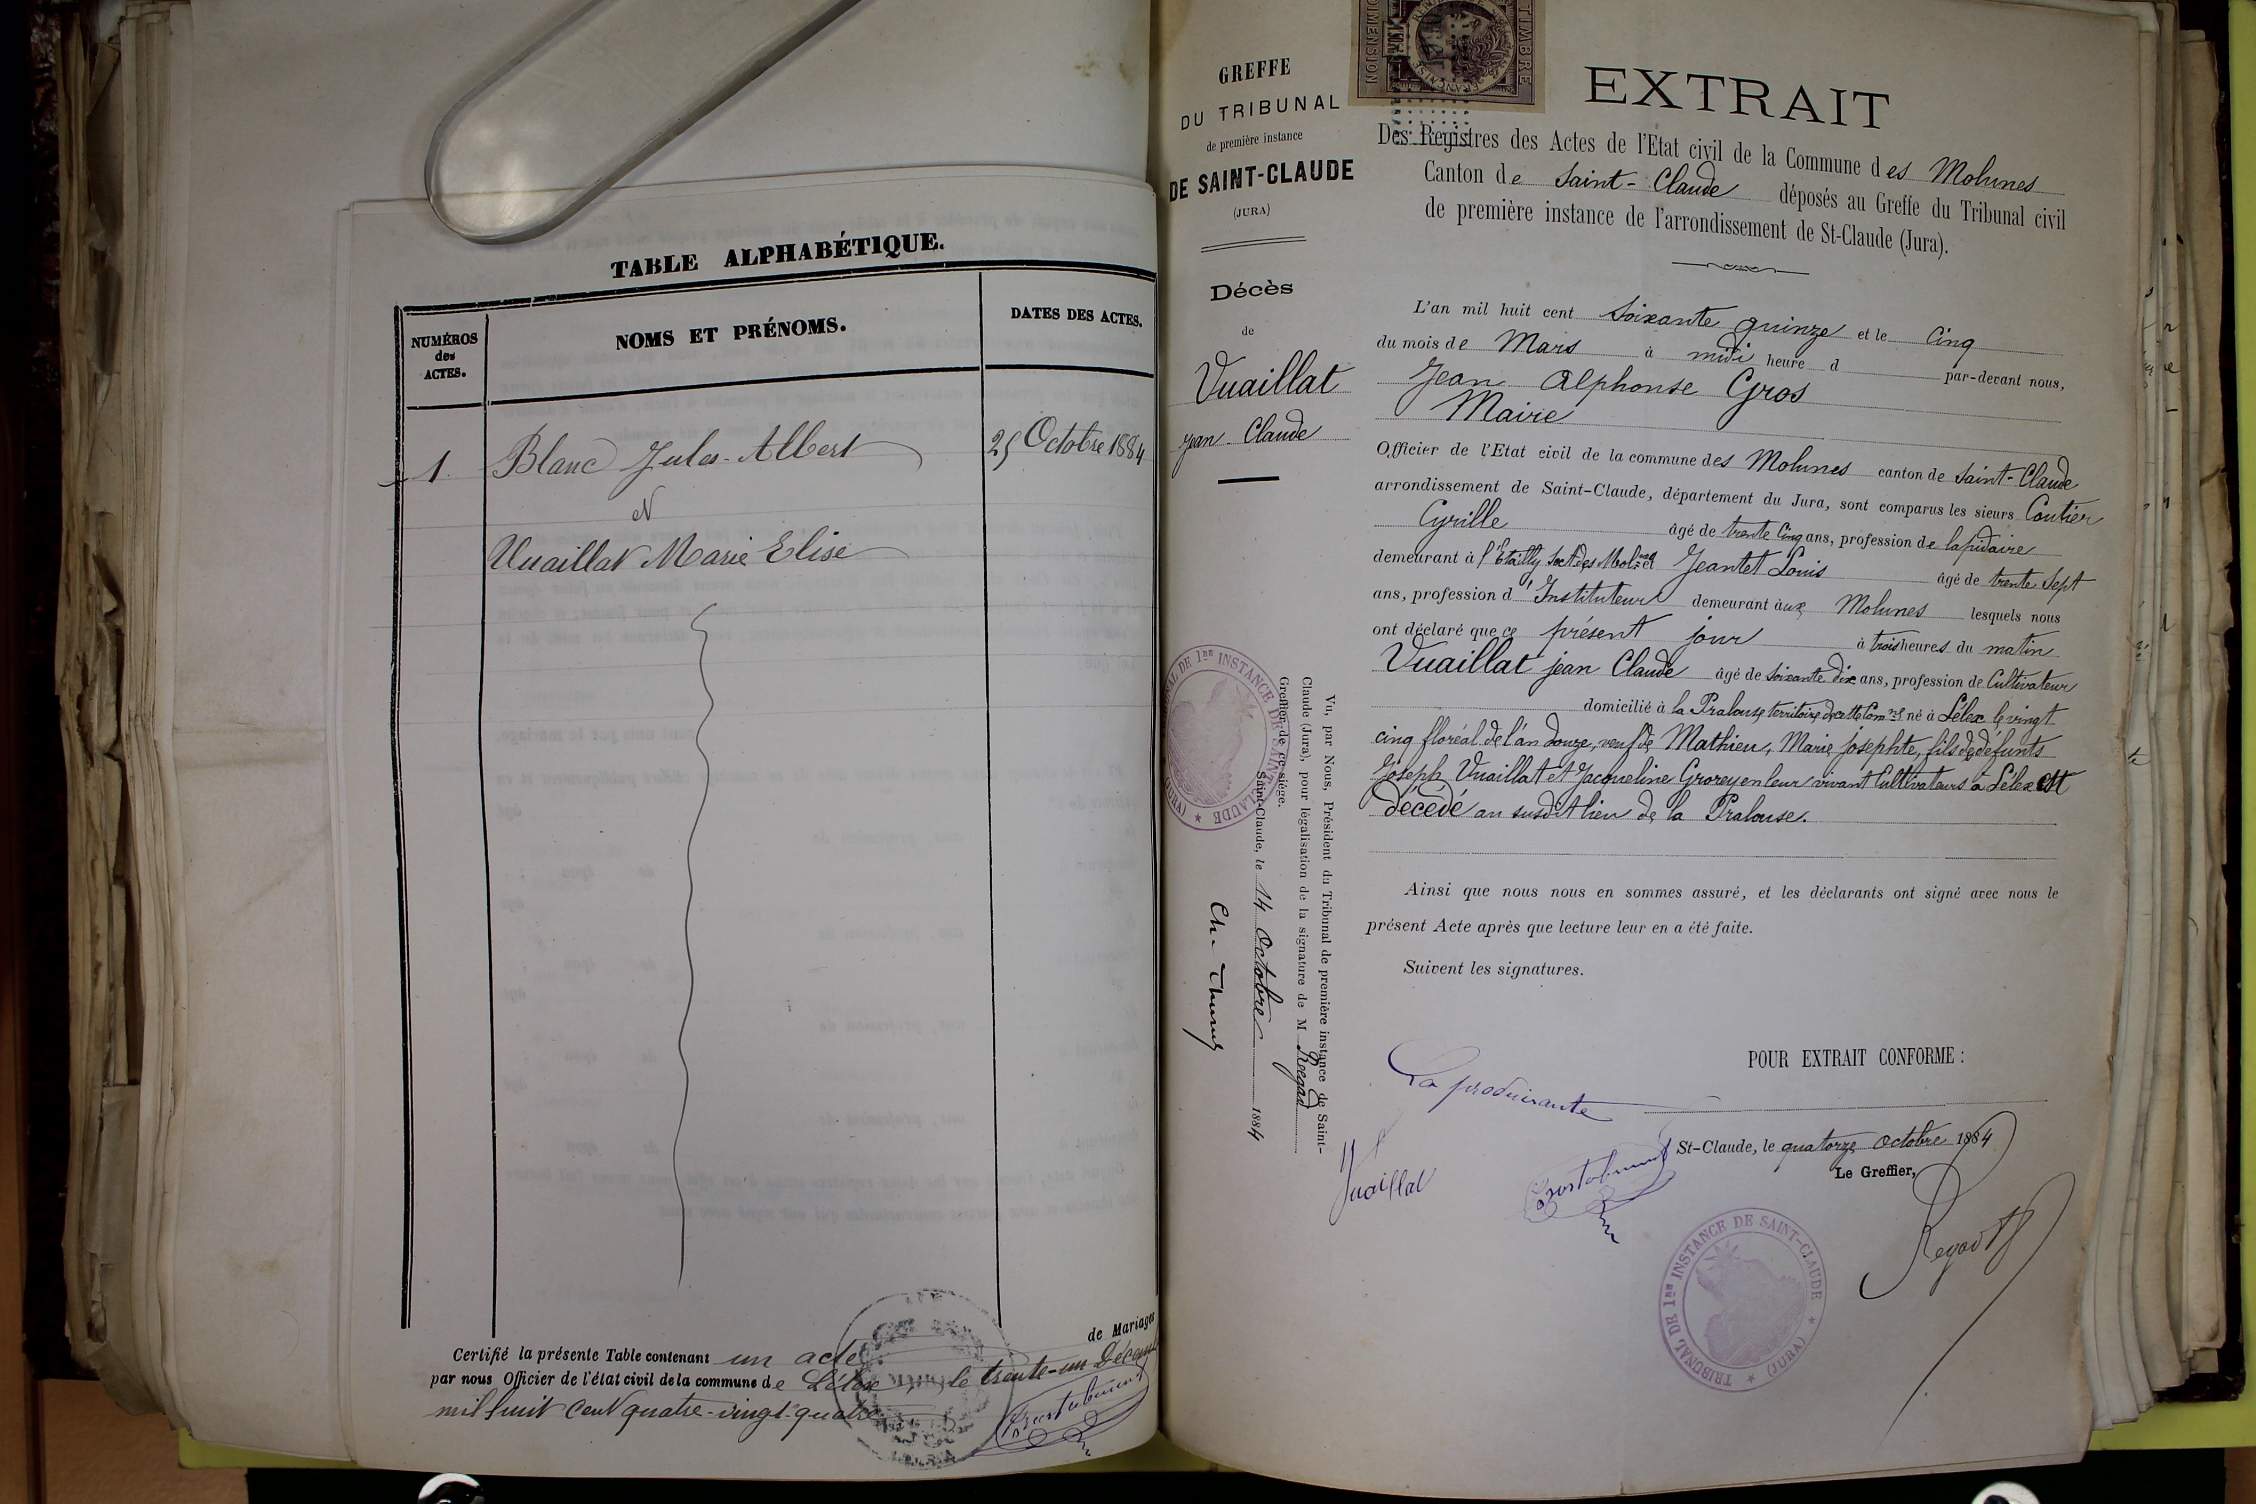 TABLE ALPHABÉTIQUE.
NUMÉROS
des
ACTES.
NOMS ET PRÉNOMS.
DATES DES ACTES.
1. Blanc Jules-Albert 25 Octobre 1884
et
Vuaillat Marie Elise
de Mariages
Certifié la présente Table contenant un acte
par nous Officier de l'état civil de la commune de Lélex, le trente-un Décemb
mil huit cent quatre-vingt-quatre
MAIRIE
GREFFE
DU TRIBUNAL
de première instance
DE SAINT-CLAUDE
(JURA)
Décès
de
Vuaillat
jean Claude
TIMBRE
DIMENSION
EXTRAIT
Des Registres des Actes de l'Etat civil de la Commune des Molunes
Canton de Saint-Claude déposés au Greffe du Tribunal civil
de première instance de l'arrondissement de St-Claude (Jura).
L'an mil huit cent soixante quinze et le cinq
du mois de Mars à midi heure d par-devant nous,
Jean Alphonse Gros
Maire
Officier de l'Etat civil de la commune des Molunes canton de Saint-Claude
arrondissement de Saint-Claude, département du Jura, sont comparus les sieurs Coutier
Cyrille âgé de trente cinq ans, profession de lapidaire
demeurant à l'Etailly Sect. des Molnes et Jeantet Louis âgé de trente sept
ans, profession d'Instituteur demeurant aux Molunes lesquels nous
ont déclaré que ce présent jour à trois heures du matin
Vuaillat jean Claude âgé de soixante dix ans, profession de Cultivateur
domicilié à la Pralouse territoire de cette Comne né à Lélex le vingt
cinq floréal de l'an douze, veuf de Mathieu, Marie josephte, fils de défunts
Joseph Vuaillat et Jacqueline Grorey en leur vivant Cultivateurs à Lélex est
décédé au susdit lieu de la Pralouse.
Ainsi que nous nous en sommes assuré, et les déclarants ont signé avec nous le
présent Acte après que lecture leur en a été faite.
Suivent les signatures.
POUR EXTRAIT CONFORME :
La produisante
Vuaillat
St-Claude, le quatorze octobre 1884
Le Greffier,
TRIBUNAL DE 1re INSTANCE DE SAINT-CLAUDE
(JURA)
Vu, par Nous, Président du Tribunal de première instance de Saint-
Claude (Jura), pour légalisation de la signature de M Regad
Greffier de ce siège.
Saint-Claude, le 14 octobre 1884
TRIBUNAL DE 1re INSTANCE DE SAINT-CLAUDE
(JURA)